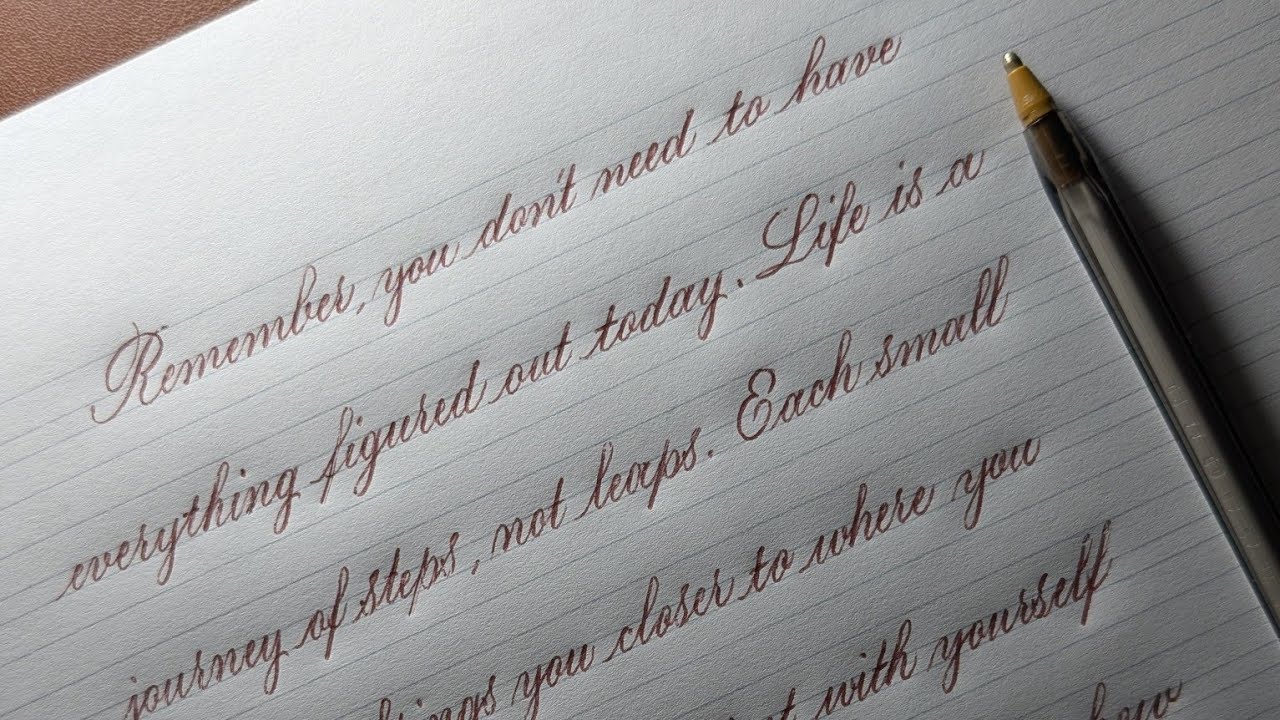 Remember, you don't need to have
everything figured out today. Life is a
journey of steps, not leaps. Each small
you closer to where you
with yourself